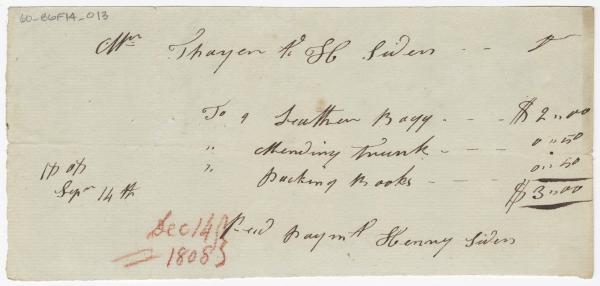 60-86F14-013
Mr Thayer to H Siders - - Dr
To 1 Leather Bagg - - - $2..00
" Mending trunk - - - 0..50
" Packing Books - - - 0..50
Sepr 14th $3..00
Dec 14
1808
Recd paymt Henry Siders